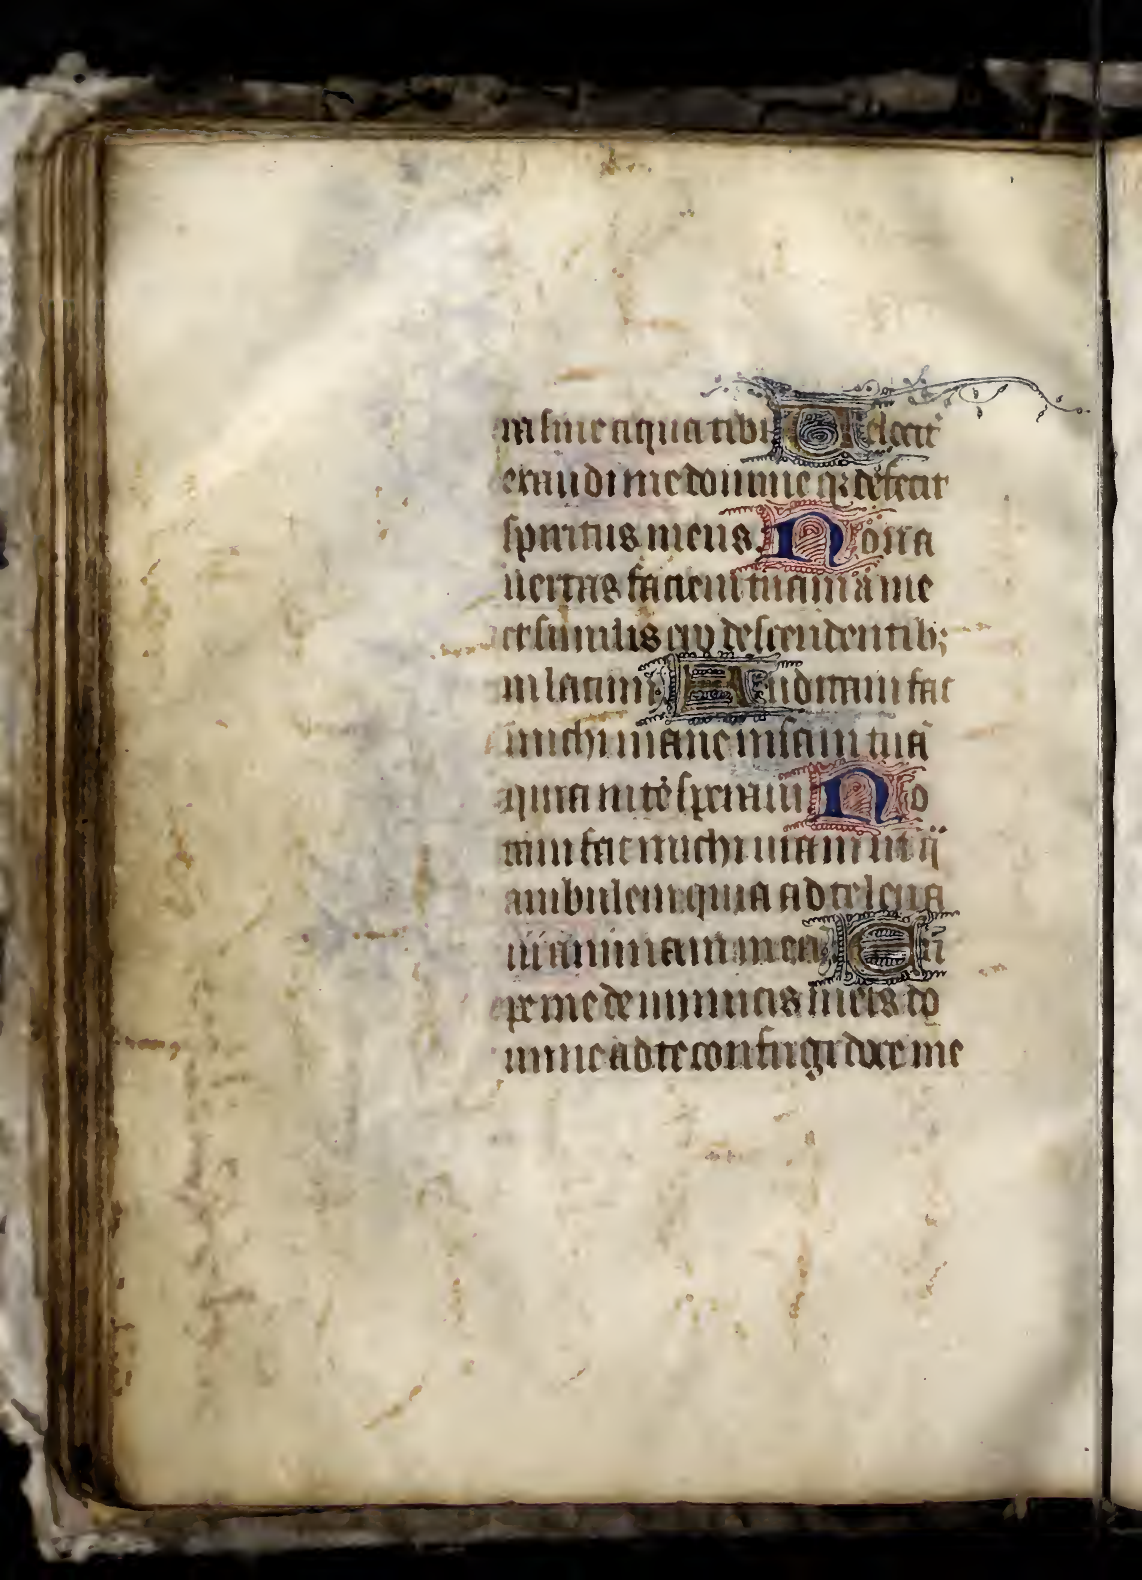 ra sine aqua tibi Uelocit̄
exaudi me domine q̄ defecit
spiritus meus. Non a
uertas faciem tuam a me
et similis ero descendentib;
in lacum. Auditam fac
michi mane mīam tuā
quia in te speraui. No
tam fac michi uiam in q̄
ambulem quia ad te leua
ui animam meā Eri
pe me de inimicis meis do
mine ad te confugi doce me